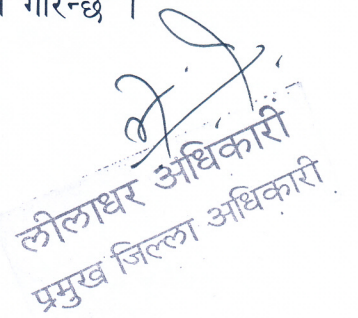 गरिन्छ ।
लीलाधर अधिकारी
प्रमुख जिल्ला अधिकारी